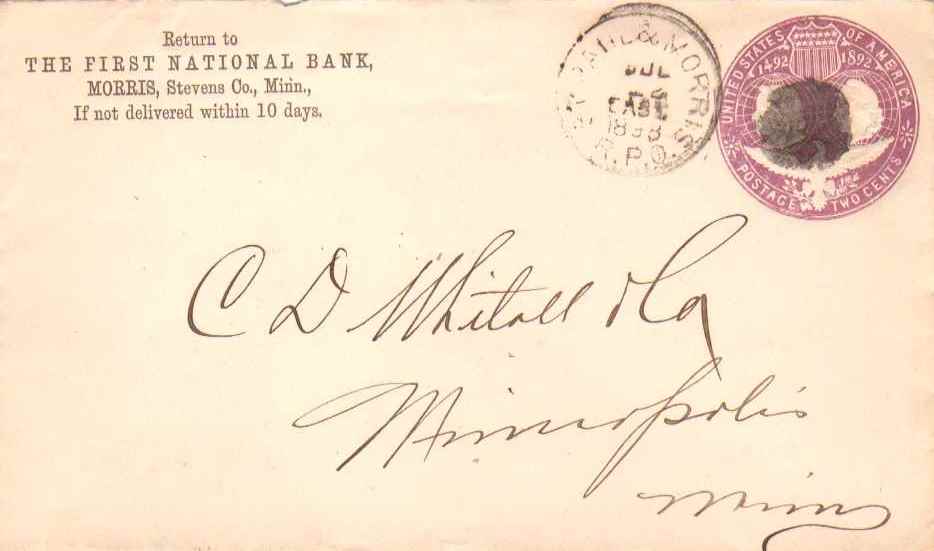 Return to
THE FIRST NATIONAL BANK,
MORRIS, Stevens Co., Minn.,
If not delivered within 10 days.
ST. PAUL & MORRIS
JUL
EAST
R.P.O.
UNITED STATES OF AMERICA
1492 1892
POSTAGE TWO CENTS
C D Whitall & Co
Minneapolis
Minn